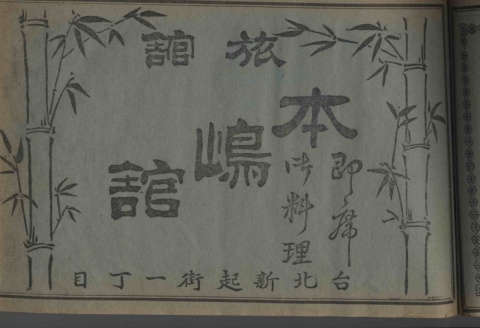 旅舘
本嶋舘
即席
御料理
台北新起街一丁目